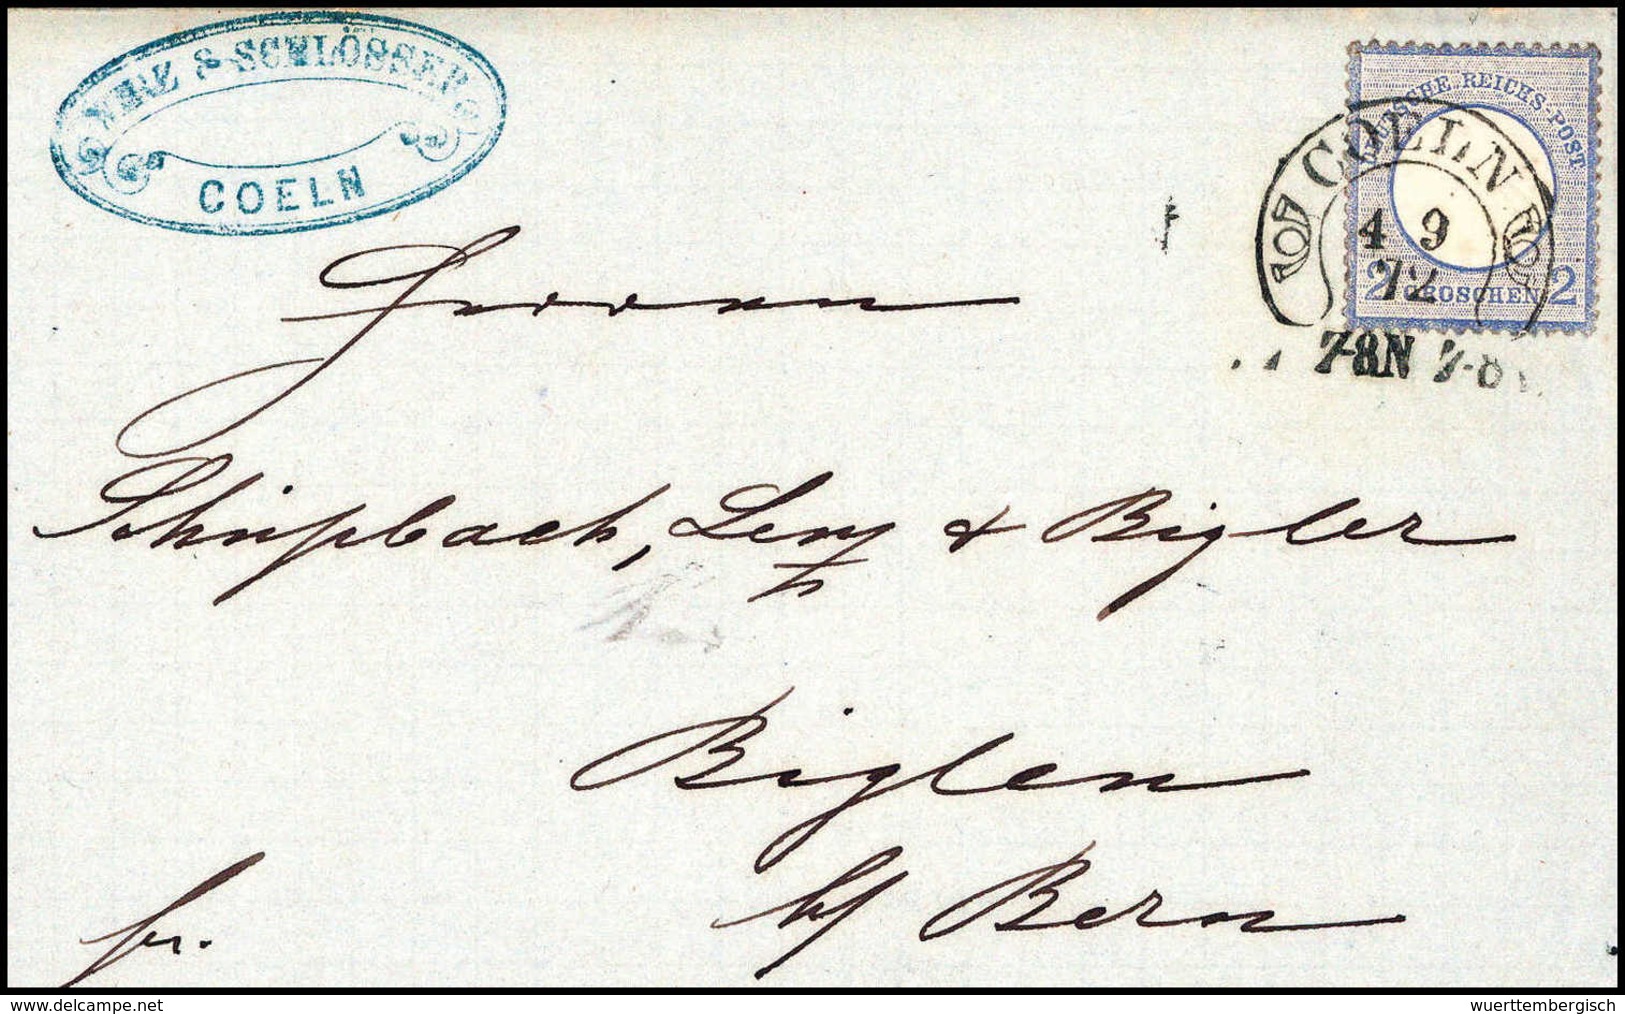 & SCHLÖSSER
COELN
DEUTSCHE REICHS-POST
COELN
4 9
72
2 GROSCHEN 2
7-8N 7-8
Herren
Schüpbach, Lenz & Bigler
Biglen
b/ Bern
fr.
delcampe.net
wuerttembergisch